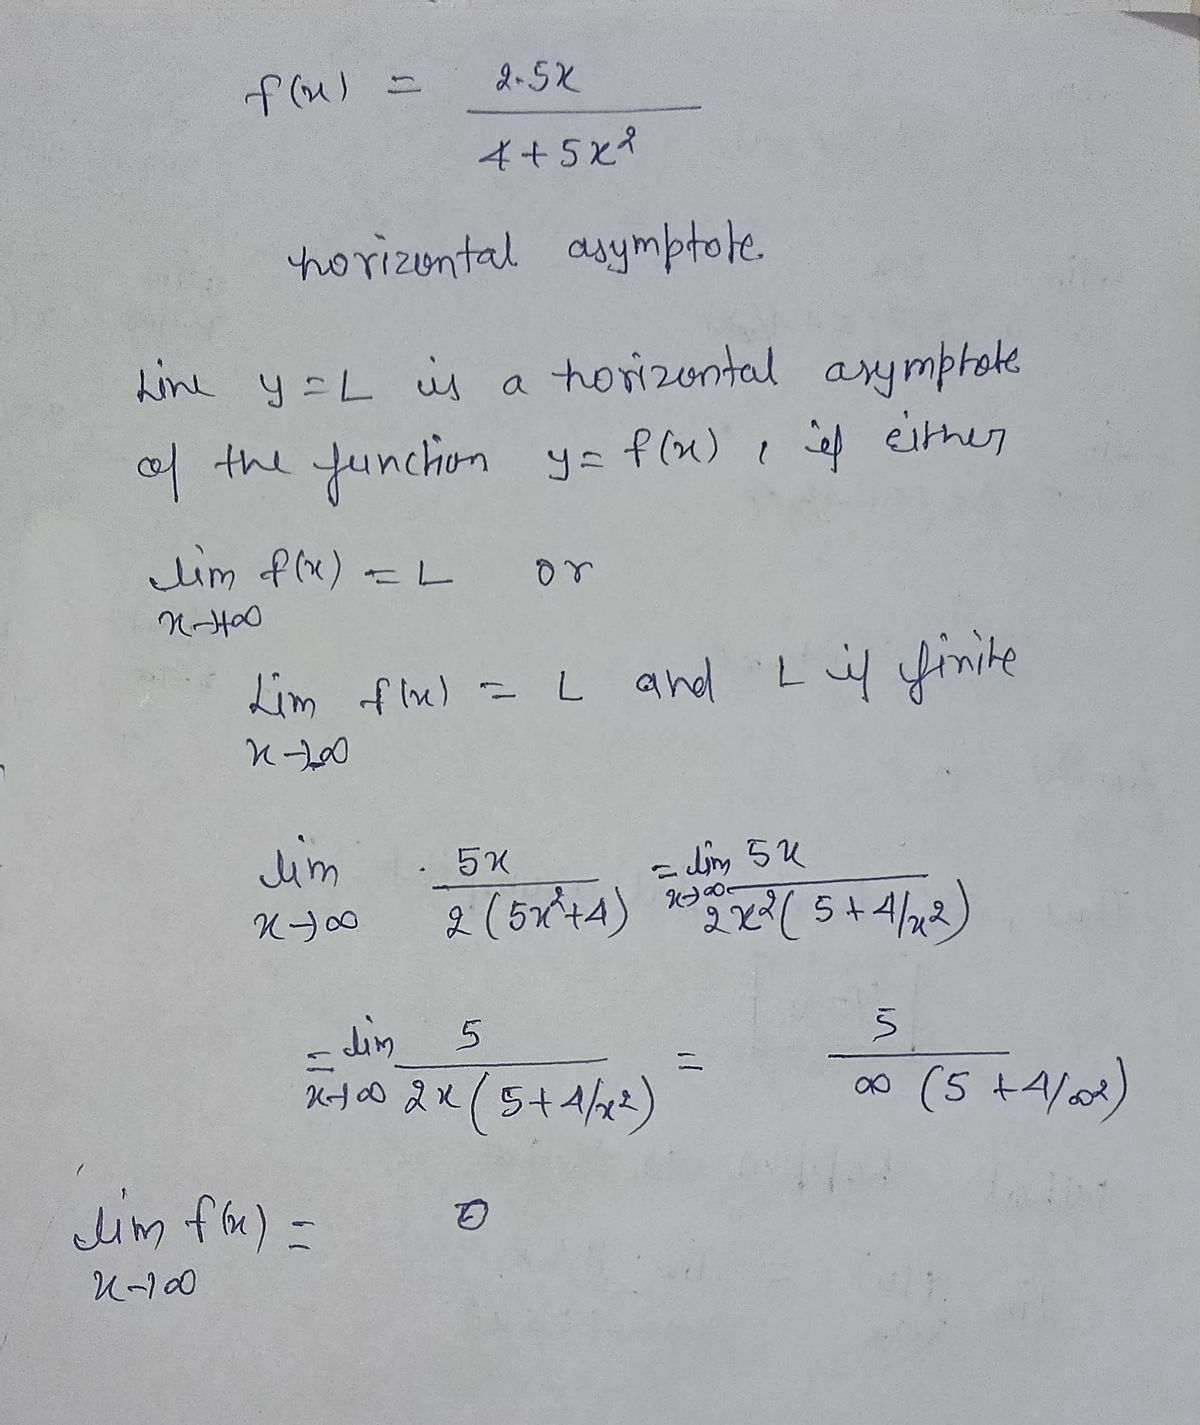 f(x) = 2.5x / 4 + 5x²
horizontal asymptote.
Line y = L is a horizontal asymptote
of the function y = f(x) , if either
lim f(x) = L or
x→+∞
Lim f(x) = L and L is finite
x→-∞
lim 5x / 2(5x²+4) = lim 5x / 2x²(5+4/x²)
x→∞ x→∞
= lim 5 / 2x(5+4/x²) = 5 / ∞(5+4/∞²)
x→∞
lim f(x) = 0
x→∞